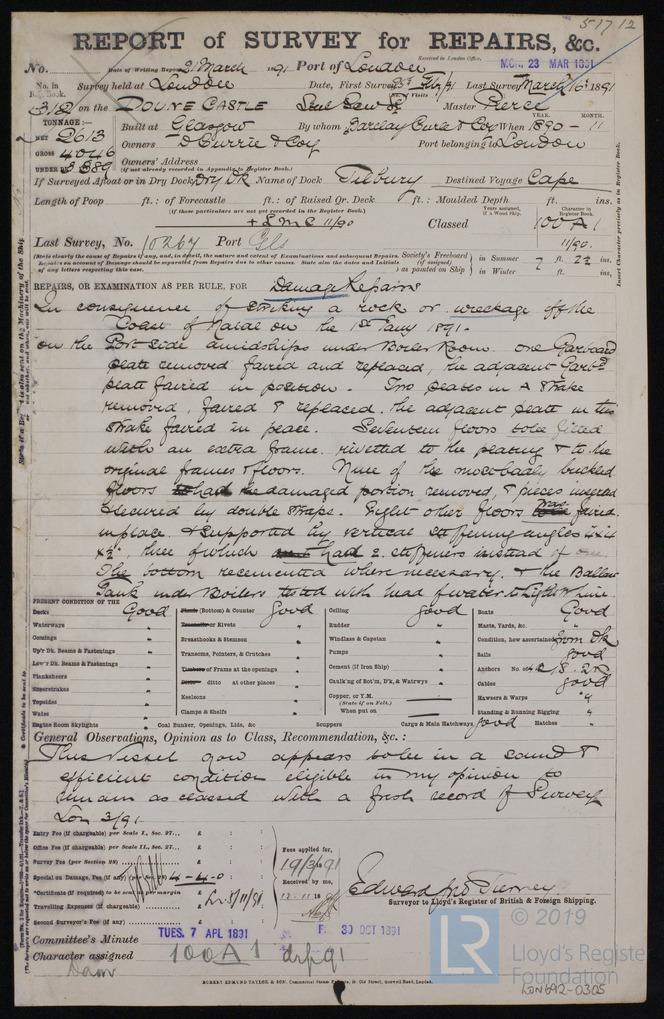 51712
REPORT of SURVEY for REPAIRS, &c.
Received in London Office,
No. Date of Writing Report 21 March 1891 Port of London MON. 23 MAR 1891
No. in Reg. Book. Survey held at London Date, First Survey 25 Feb/91 Last Survey March 16th 1891
312 on the DOUNE CASTLE Master Pierce
TONNAGE:— YEAR. MONTH.
NET 2613 Built at Glasgow By whom Barclay Curle & Coy When 1890 - 11
GROSS 4046 Owners D Currie & Coy Port belonging to London
UNDER DK 3389 Owners' Address
(if not already recorded in Appendix to Register Book.)
If Surveyed Afloat or in Dry Dock Dry Dk Name of Dock Tilbury Destined Voyage Cape
Length of Poop ft.: of Forecastle ft.: of Raised Qr. Deck ft.: Moulded Depth ft. ins.
(if those particulars are not yet recorded in the Register Book.)
+ LMC 11/90 Classed 100 A 1
Years assigned, if a Wood Ship. Character in Register Book.
11/90.
Last Survey, No. 10267 Port Gls
Society's Freeboard (if assigned) as painted on Ship in Summer 7 ft. 2½ ins.
in Winter ft. ins.
REPAIRS, OR EXAMINATION AS PER RULE, FOR Damage Repairs
In consequence of striking a rock or wreckage off the
Coast of Natal on the 1st Jany 1891.
on the Port side amidships under Boiler Room. one Garboard
plate removed faired and replaced, the adjacent Garbd
plate faired in position. Two plates in A Strake
removed, faired & replaced. the adjacent plate in this
strake faired in place. Seventeen floors fitted
with an extra frame rivetted to the plating & to the
original frames & floors. Nine of the most badly buckled
floors had damaged portion removed, & pieces inserted
& secured by double straps. Eight other floors was faired
in place & supported by vertical stiffening angles 4x4
x½, three of which had 2 stiffeners instead of one.
The bottom recemented where necessary, & the Ballast
Tank under Boilers tested with head of water to Light W Line.
PRESENT CONDITION OF THE
Decks Good
Waterways "
Comings "
Up'r Dk. Beams & Fastenings "
Low'r Dk. Beams & Fastenings "
Planksheers "
Sheerstrakes "
Topsides "
Wales "
Engine Room Skylights "
Plank (Bottom) & Counter Good
Treenails or Rivets "
Breasthooks & Stemson "
Transoms, Pointers, & Crutches "
Timbers or Frames at the openings "
Ditto ditto at other places "
Keelsons "
Clamps & Shelfs "
Coal Bunker, Openings, Lids, &c "
Ceiling Good
Rudder "
Windlass & Capstan "
Pumps "
Cement (if Iron Ship) "
Caulk'ng of Bot'm, D'k, & Watrwys "
Copper, or Y.M.
(State if on Felt.)
When put on
Scuppers Cargo & Main Hatchways Good
Boats Good
Masts, Yards, &c. "
Condition, how ascertained from Dk
Sails Good
Anchors No. of 4B. 1S. 2K
Cables Good
Hawsers & Warps "
Standing & Running Rigging "
Hatches "
General Observations, Opinion as to Class, Recommendation, &c.:
This Vessel now appears to be in a sound &
efficient condition eligible in my opinion to
remain as classed with a fresh record of Survey
Lon 3/91.
Entry Fee (if chargeable) per Scale I., Sec. 27... £ : :
Office Fee (if chargeable) per Scale II., Sec. 27... £ : :
Survey Fee (per Section 28) £ : :
Special on Damage, Fee (if any) (per Sec. 28) £ 4-4-0
*Certificate (if required) to be sent as per margin
Travelling Expenses (if chargeable) £ : :
Second Surveyor's Fee (if any) £ : :
Fees applied for,
19/3/1891
Received by me,
Edward Jno Tierney
Surveyor to Lloyd's Register of British & Foreign Shipping.
Committee's Minute TUES. 7 APL 1891 FRI. 30 OCT 1891
Character assigned 100 A 1 drp 91
Dam
ROBERT EDMUND TAYLOR & SON, Commercial Steam Printers, 19, Old Street, Goswell Road, London.
LR
© 2019
Lloyd's Register
Foundation
LON692-0305